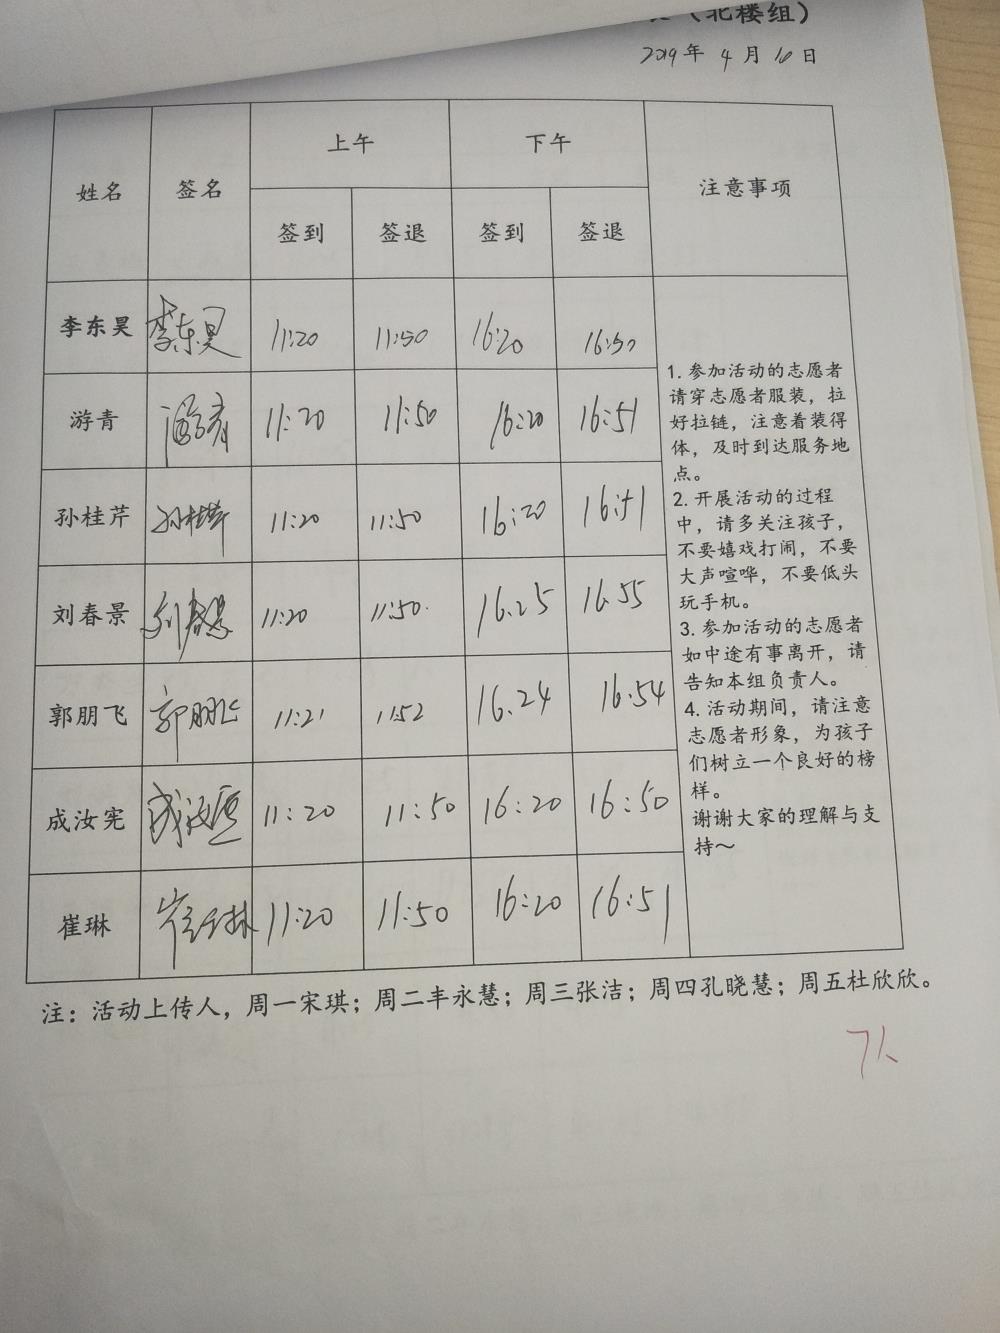 （北楼组）
2019年 4月 10日
姓名 签名 上午 下午 注意事项
签到 签退 签到 签退
李东昊 李东昊 11:20 11:50 16:20 16:50
游青 游青 11:20 11:50 16:20 16:51
孙桂芹 孙桂芹 11:20 11:50 16:20 16:51
刘春景 刘春景 11:20 11:50. 16.25 16.55
郭朋飞 郭朋飞 11:21 11:52 16.24 16.54
成汝宪 成汝宪 11:20 11:50 16:20 16:50
崔琳 崔琳 11:20 11:50 16:20 16:51
1. 参加活动的志愿者
请穿志愿者服装，拉
好拉链，注意着装得
体，及时到达服务地
点。
2. 开展活动的过程
中，请多关注孩子，
不要嬉戏打闹，不要
大声喧哗，不要低头
玩手机。
3. 参加活动的志愿者
如中途有事离开，请
告知本组负责人。
4. 活动期间，请注意
志愿者形象，为孩子
们树立一个良好的榜
样。
谢谢大家的理解与支
持～
注：活动上传人，周一宋琪；周二丰永慧；周三张洁；周四孔晓慧；周五杜欣欣。
7人